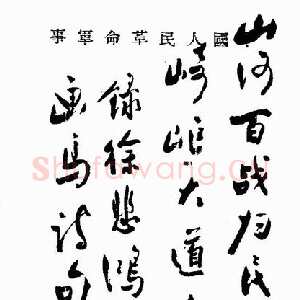 國人民革命軍事
山河百战归民
崎岖大道
録徐悲鸿
画马诗句
Shufawang.cn